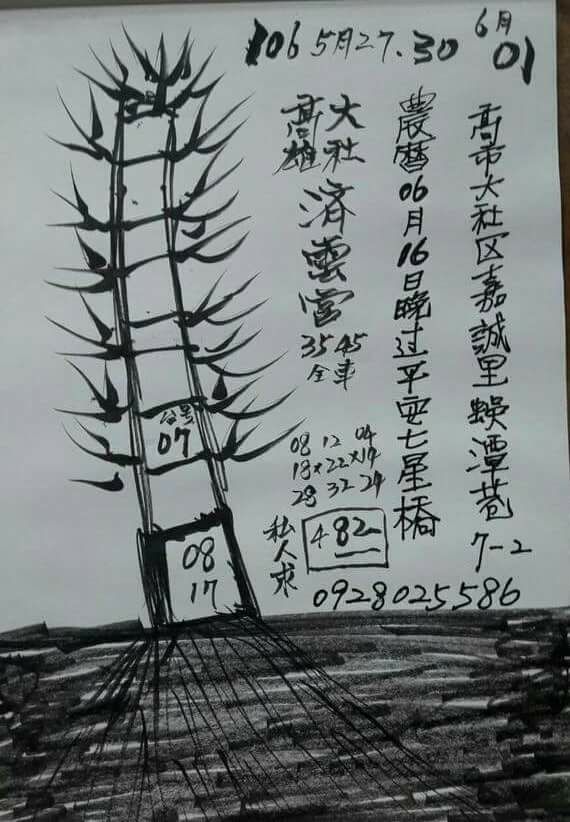 106 5月27.30 6月01
高市大社区嘉誠里蜈潭巷7-2
農曆06月16日晚过平安七星橋
大社
高雄
済雲宮
35 45
全車
08 12 04
18×22×14
28 32 24
482
私人求
0928025586
公号
07
08
17